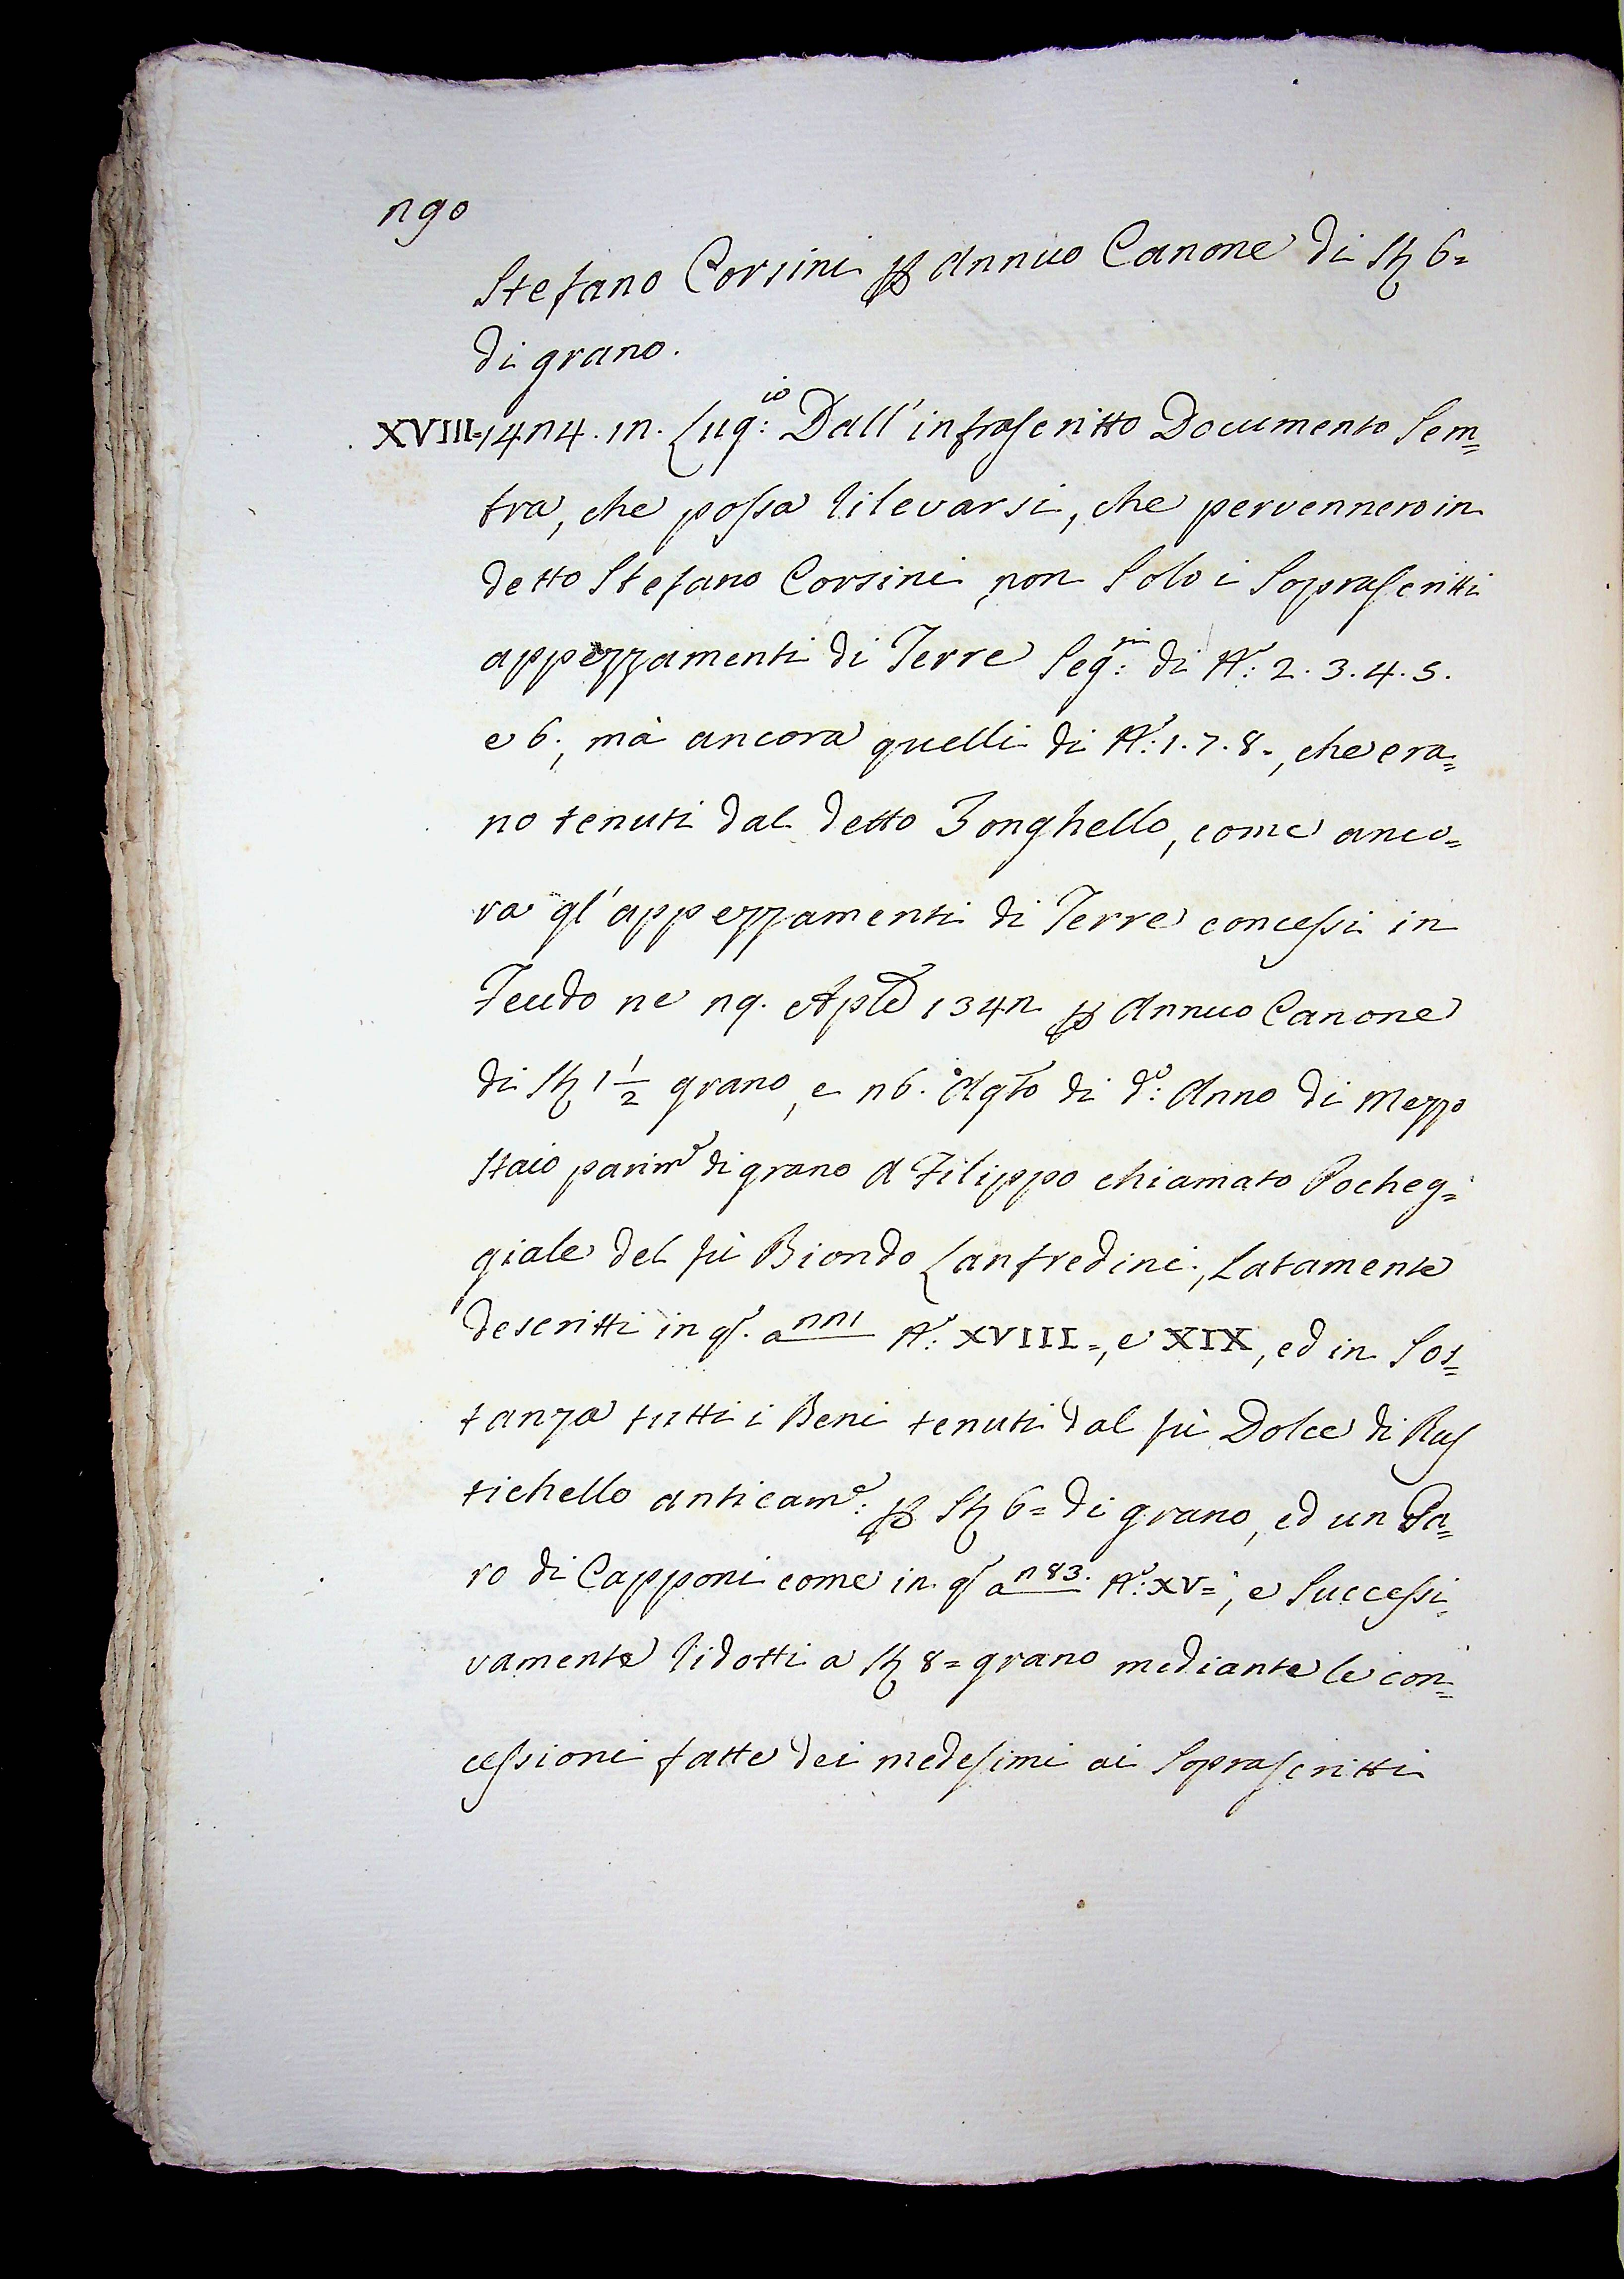 290
Stefano Corsini p Annuo Canone di St 6=
di grano.
XVIII=1424. 12. Lug:io Dall'infrascritto Documento Sem=
bra, che possa Rilevarsi, che pervennero in
detto Stefano Corsini, non Solo i Soprascritti
appezzamenti di Terre Seg:ti di N:o 2. 3. 4. 5.
e 6., mà ancora quelli di N:o 1. 7. 8., che era=
no tenuti dal detto Zonghello, come anco=
ra gl'appezzamenti di Terre concessi in
Feudo ne 29. Aple 1342 p Annuo Canone
di St 1 1/2 grano, e 26. Agto di d:o Anno di mezzo
Staio parim:e di grano a Filippo chiamato Pocheg=
giale del fù Biondo Lanfredini, Latamente
descritti in q:o a 221 N:o XVIII=, e XIX, ed in Sos=
tanza tutti i Beni tenuti dal fù Dolce di Rus
tichello anticam:e p St 6= di grano, ed un Pa=
ro di Capponi come in q:o a 283. N:o XV=, e Successi=
vamente Ridotti a St 8= grano mediante le con=
cessioni fatte dei medesimi ai Soprascritti